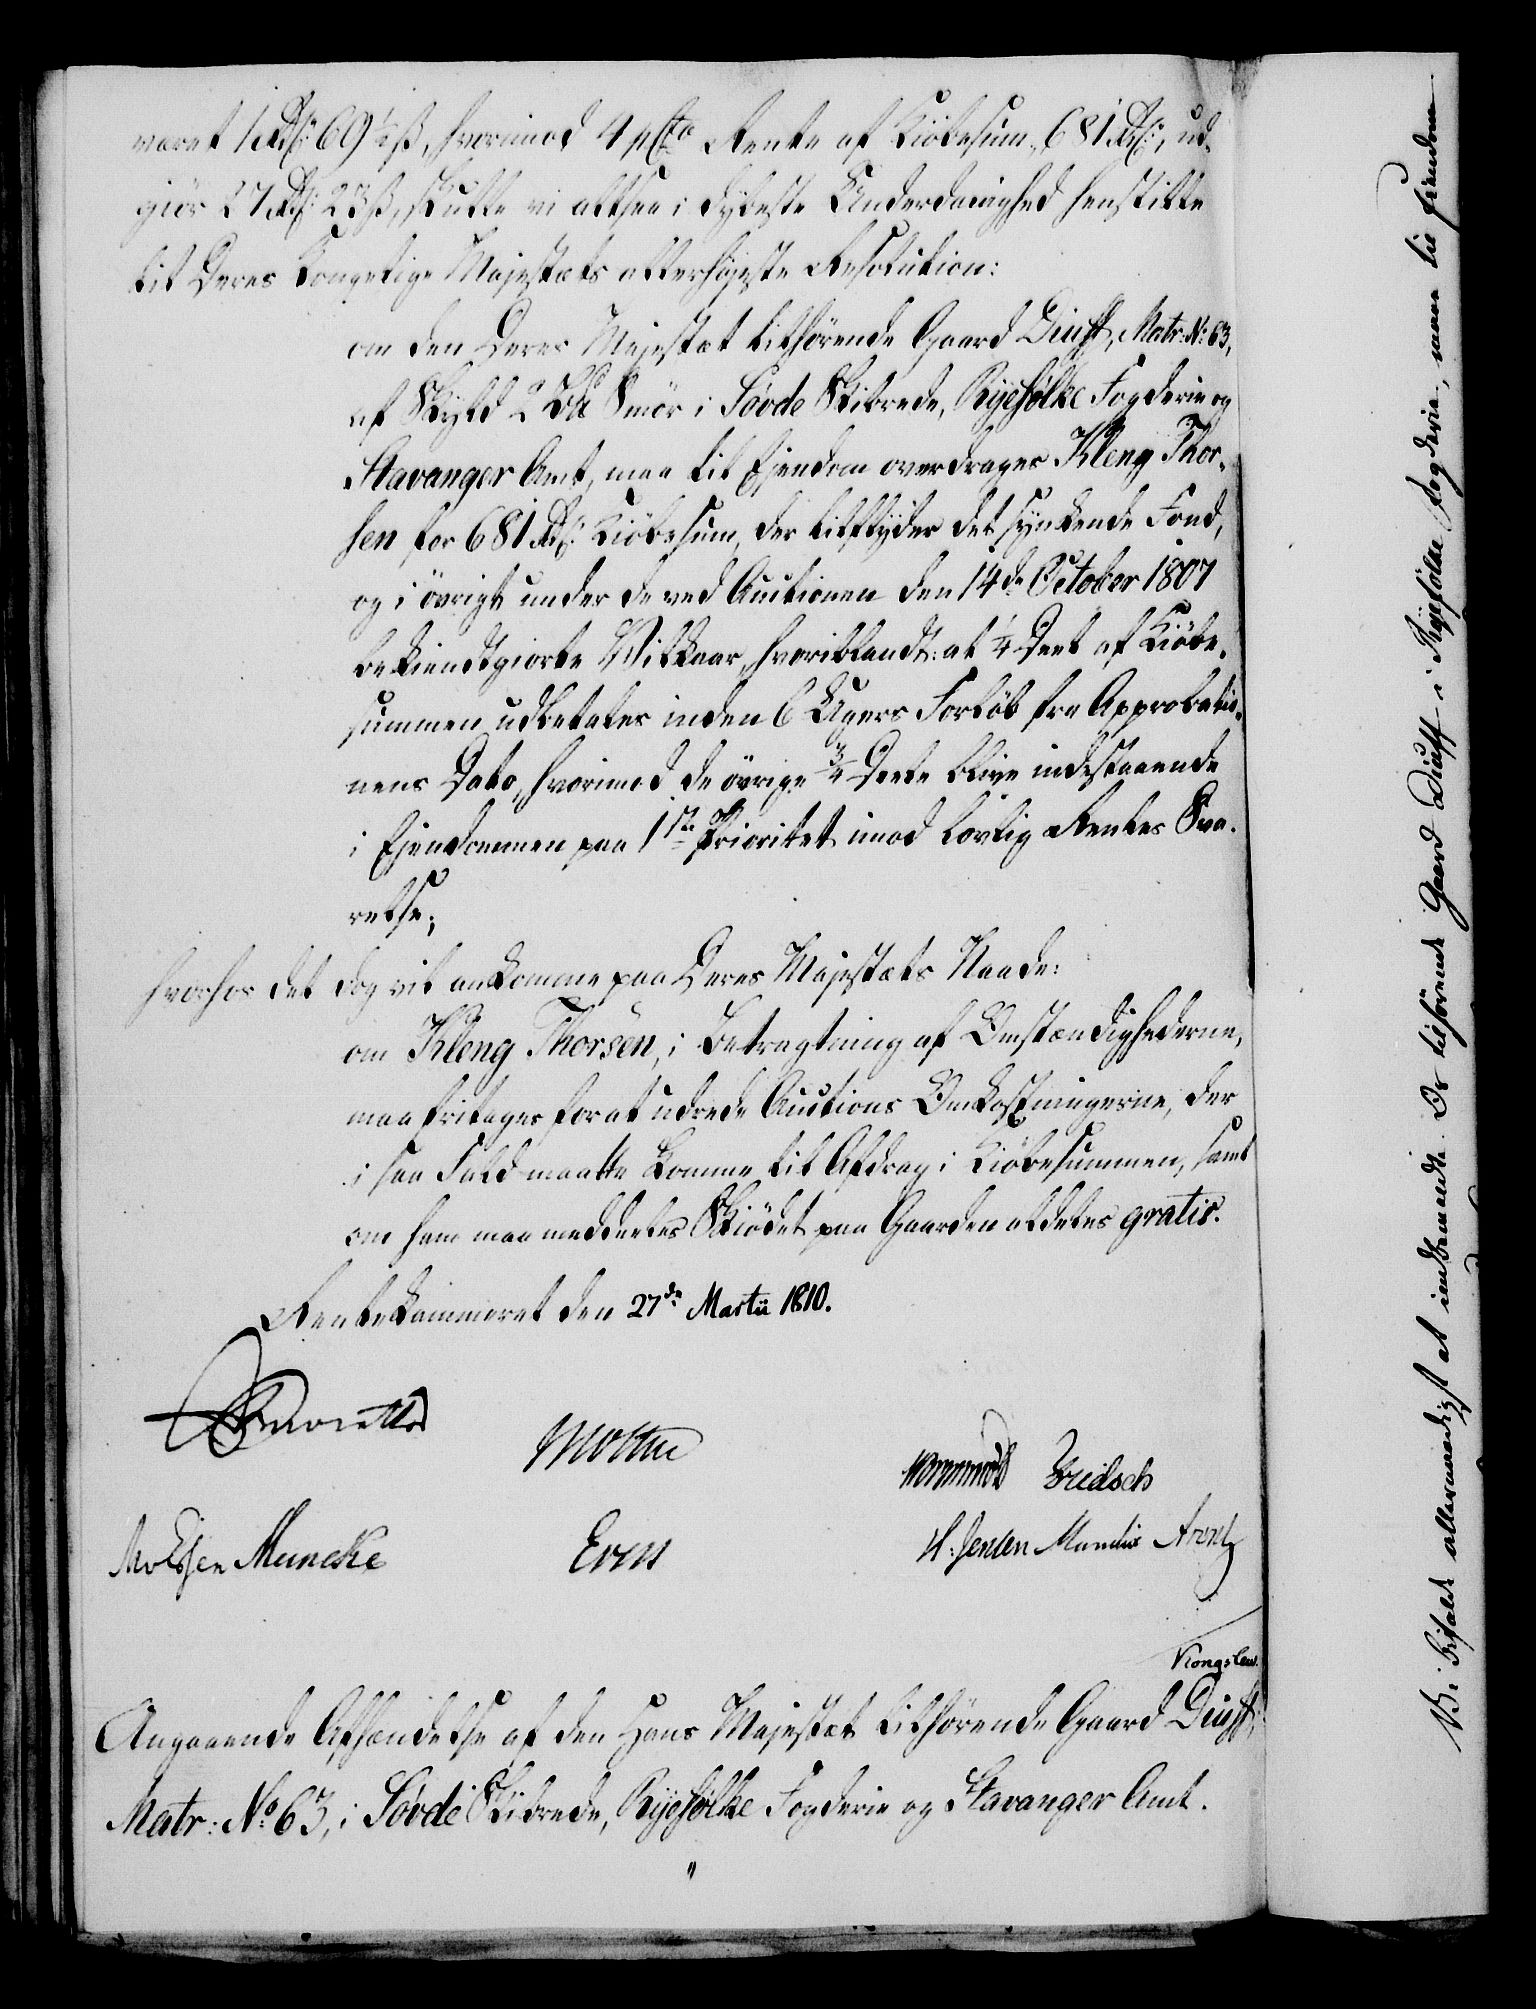 været 1 Rdr: 69 1/2 ß, hvorimod 4 pCto Rente af Kiöbesum, 681 Rdr:, ud-
giör 27 Rdr: 23 ß, skulle vi altsaa i dybeste Underdanighed henstille
til Deres Kongelige Majestæts allerhöjeste Resolution:
om den Deres Majestæt tilhörende Gaard Diuff, Matr: No: 63,
af Skyld 2 Smör i Sövde Skibrede, Ryefölke Fogderie og
Stavanger Amt, maa til Ejendom overdrages Kleng Thor-
sen for 681 Rdr: Kiöbesum, der tilflyder det synkende Fond,
og i övrigt under de ved Auctionen den 14de October 1807
bekiendtgiorte Vilkaar, hvoriblandt: at 1/4 Deel af Kiöbe-
summen udbetales inden 6 Ugers Forlöb fra Approbatio-
nens Dato, hvorimod de övrige 3/4 Deele blive indestaaende
i Ejendommen paa 1ste Prioritet imod lovlig Rentes Sva-
relse;
hvorhos det dog vil ankomme paa Deres Majestæts Naade:
om Kleng Thorsen, i Betragtning af Omstændighederne,
maa fritages for at udrede Auctions Omkostningerne, der
i saa Fald maatte komme til Afdrag i Kiöbesummen, samt
om ham maa meddeeles Skiödet paa Gaarden aldeles gratis.
Rentekammeret den 27de Martii 1810.
Knuth
H: Jensen
Angaaende Afhændelse af den Hans Majestæt tilhörende Gaard Diuff,
Matr: No: 63, i Sövde Skibrede, Ryefölke Fogderie og Stavanger Amt.
Vi bifalde allernaadigst at indbemeldte Os tilhörende Gaard Diuff i Ryefölke Fogderie, maa til Eiendom